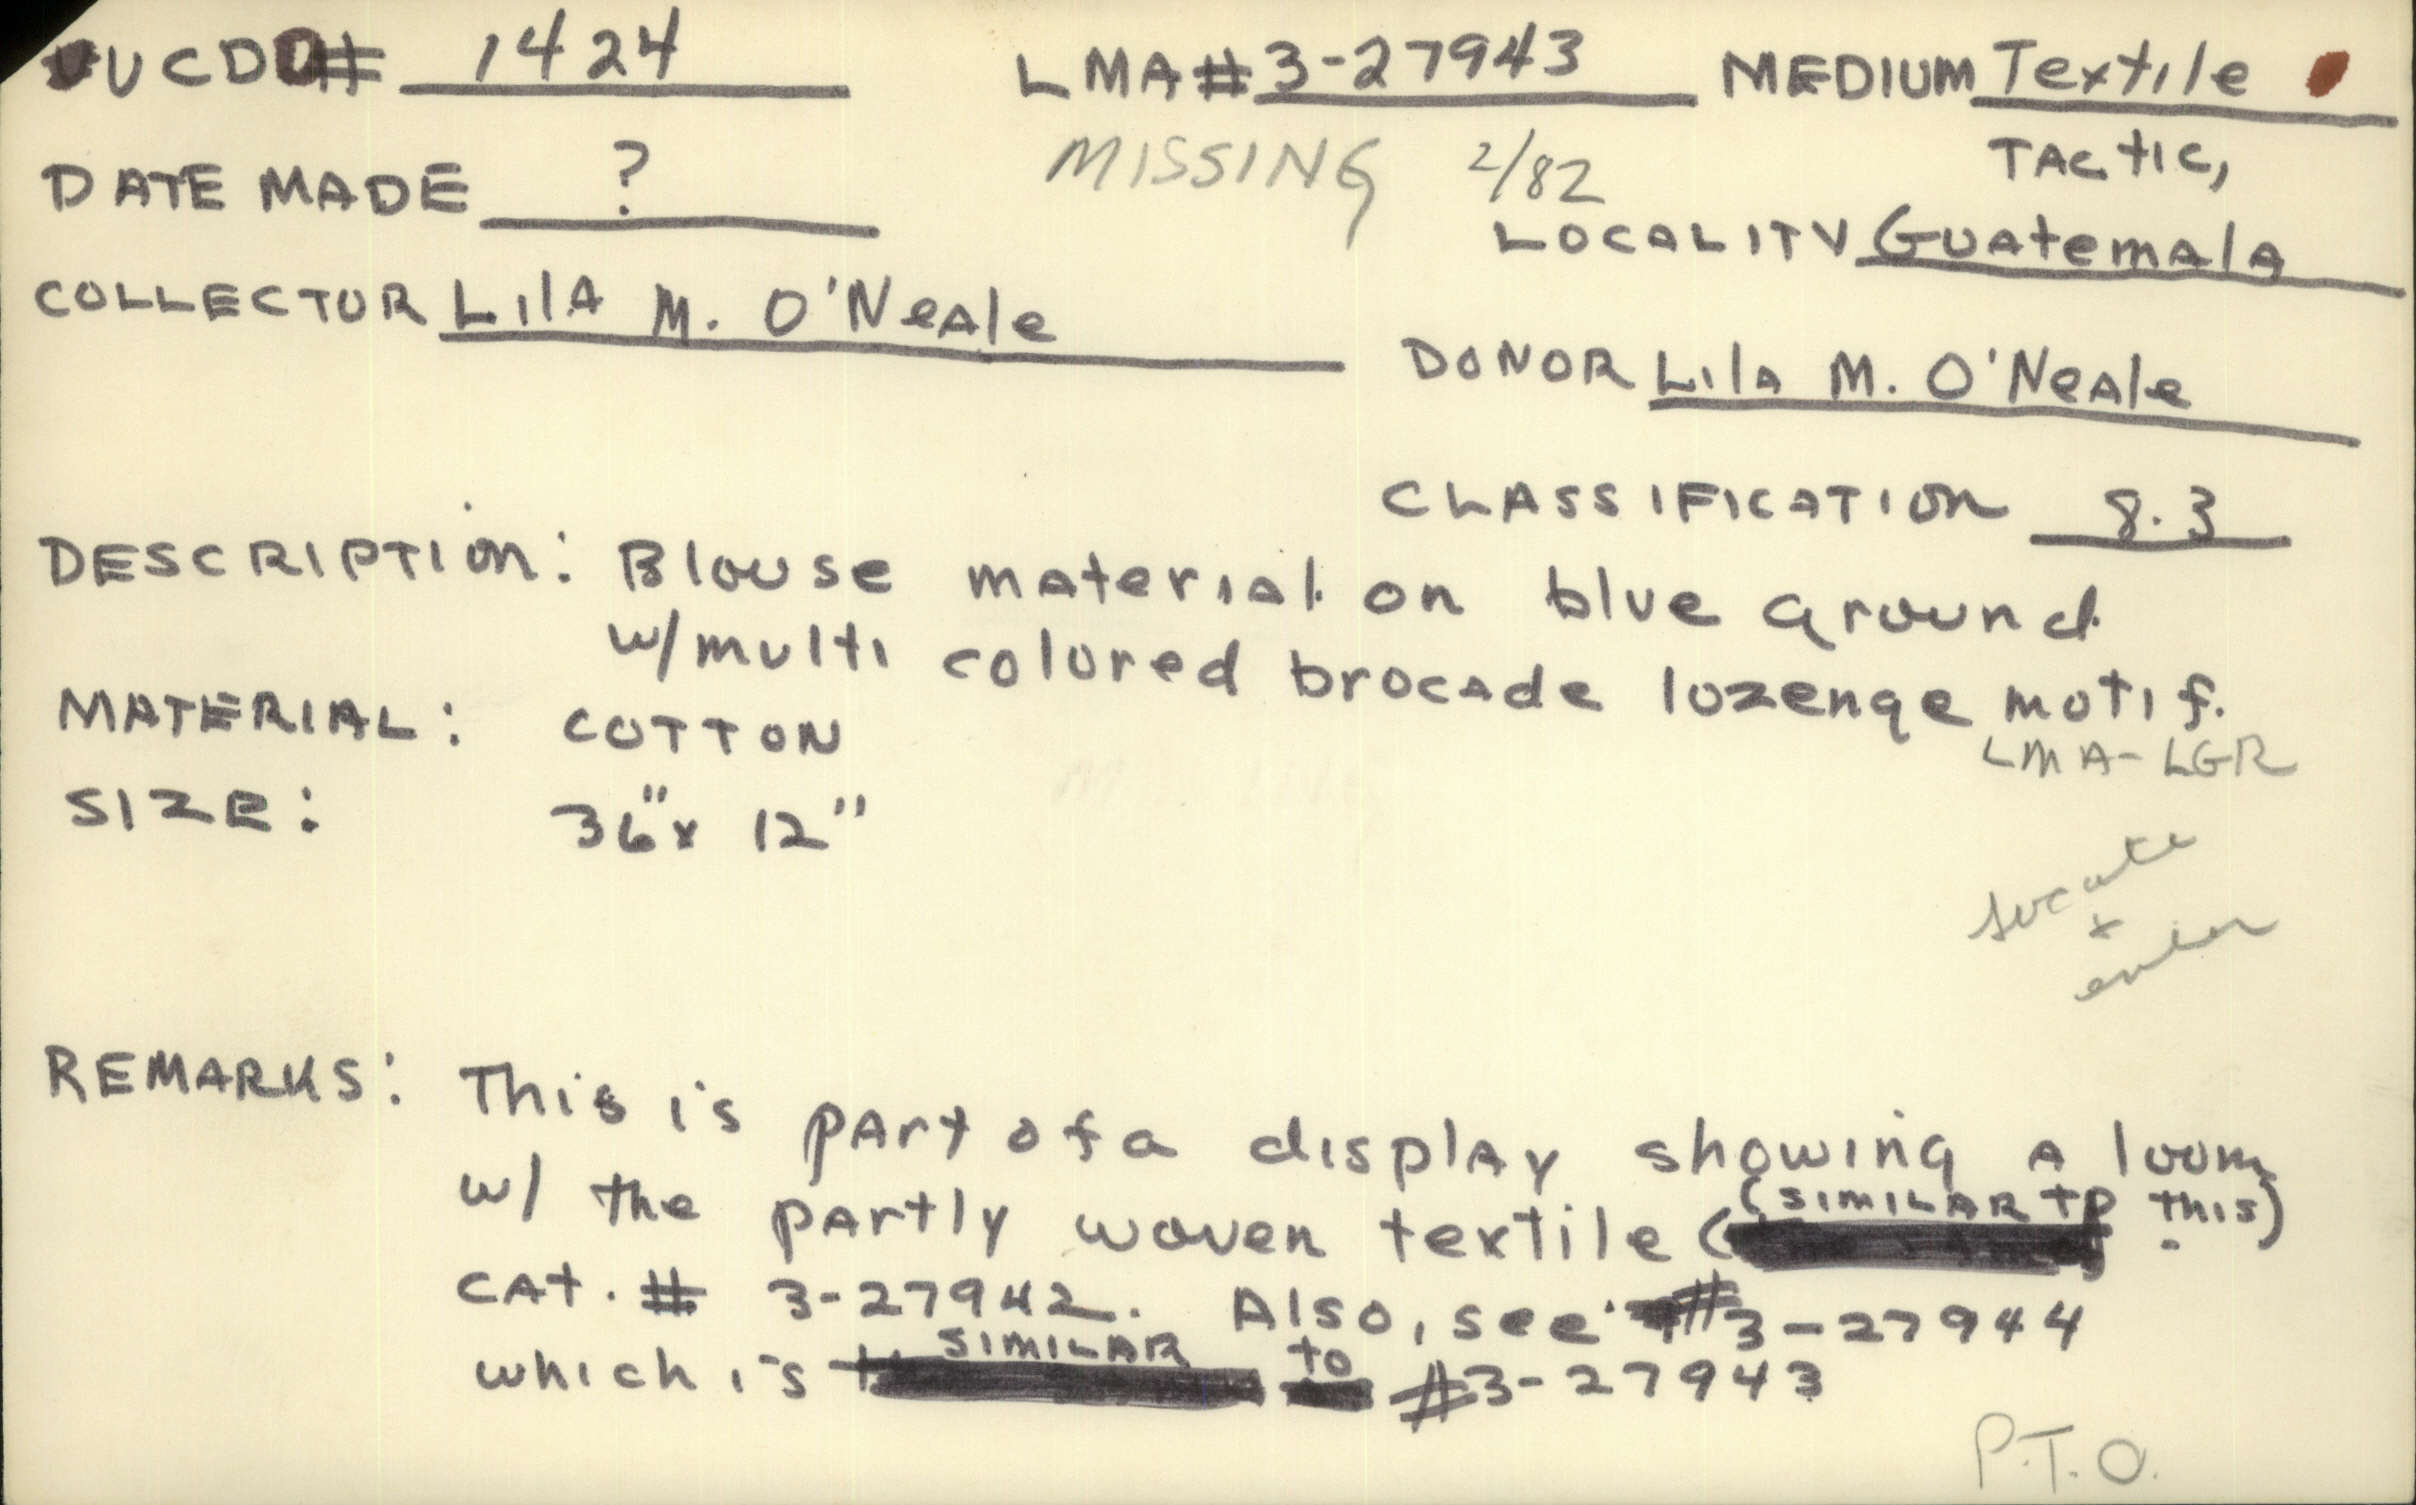 UCD # 1424 LMA # 3-27943 MEDIUM Textile
MISSING 2/82
DATE MADE ?
TACTIC,
LOCALITY Guatemala
COLLECTOR Lila M. O'Neale
DONOR Lila M. O'Neale
CLASSIFICATION 8.3
DESCRIPTION: Blouse material on blue ground
w/multi colored brocade lozenge motif.
MATERIAL: COTTON
LMA-LGR
SIZE: 36" x 12"
locate
REMARKS: This is part of a display showing a loom
w/ the partly woven textile (similar to this)
CAT. # 3-27942. Also, see #3-27944
which is similar to #3-27943
P.T.O.